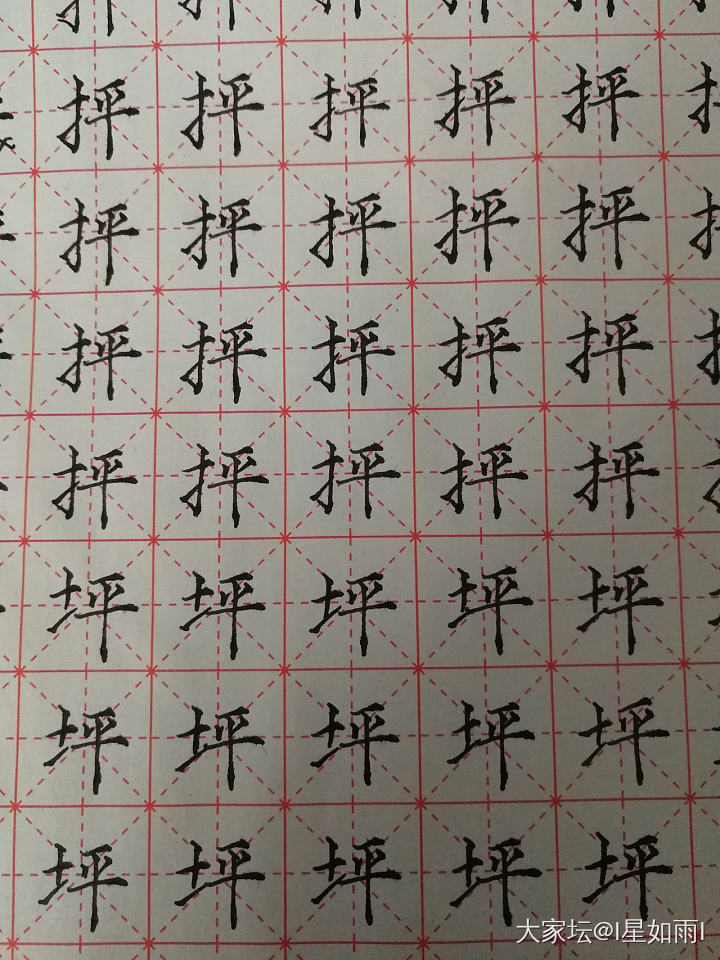 抨抨抨抨抨
抨抨抨抨抨
抨抨抨抨抨
抨抨抨抨抨
坪坪坪坪坪
坪坪坪坪坪
坪坪坪坪坪
大家坛@l星如雨l